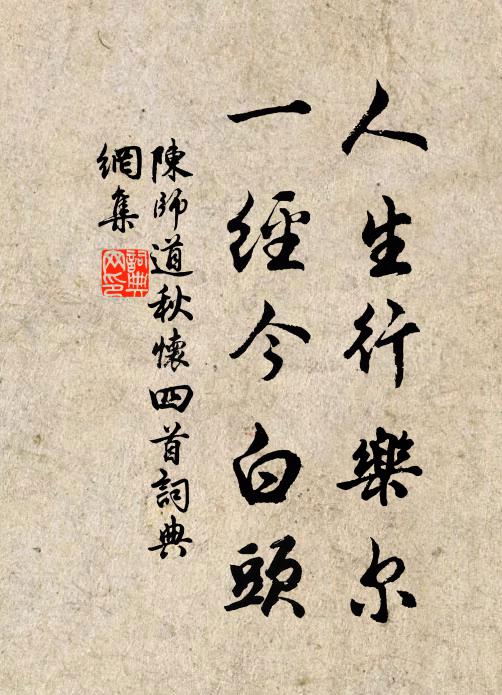 人生行樂尔
一經今白頭
陳師道秋懷四首詞典
網集
詞典
网印